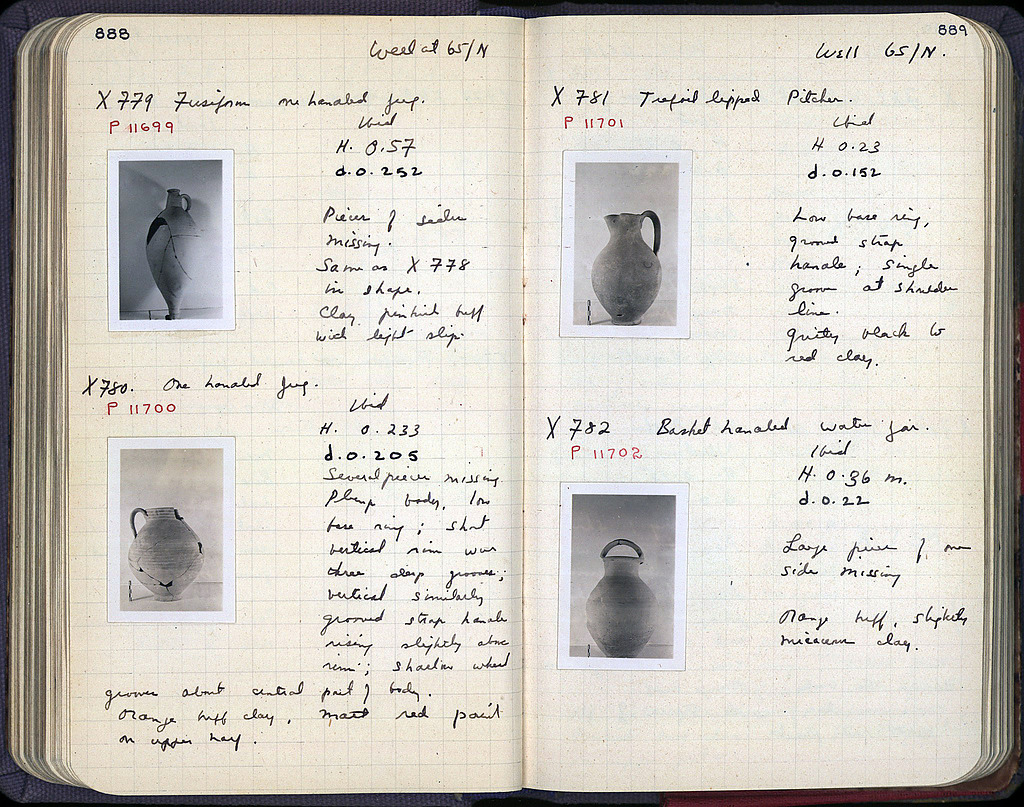 888
Well at 65/N
X 779 Fusiform one handled jug.
P 11699
Ibid
H. 0.57
d. 0.252
Pieces of
missing.
Same as X 778
in shape.
Clay pinkish buff
with light slip.
X 780. One handled jug.
P 11700
Ibid
H. 0.233
d. 0.205
Several pieces missing.
Plump body, low
base ring; short
vertical rim with
three deep grooves;
vertical similarly
grooved strap handle
rising slightly above
rim; shallow wheel
grooves about central part of body.
Orange buff clay. Matt red paint
on upper half.
889
Well 65/N.
X 781 Trefoil lipped Pitcher.
P 11701
Ibid
H 0.23
d. 0.152
Low base ring,
grooved strap
handle; single
groove at shoulder
line.
Gritty black to
red clay.
X 782 Basket handled water jar.
P 11702
Ibid
H. 0.36 m.
d. 0.22
Large piece of one
side missing
Orange buff, slightly
micaceous clay.